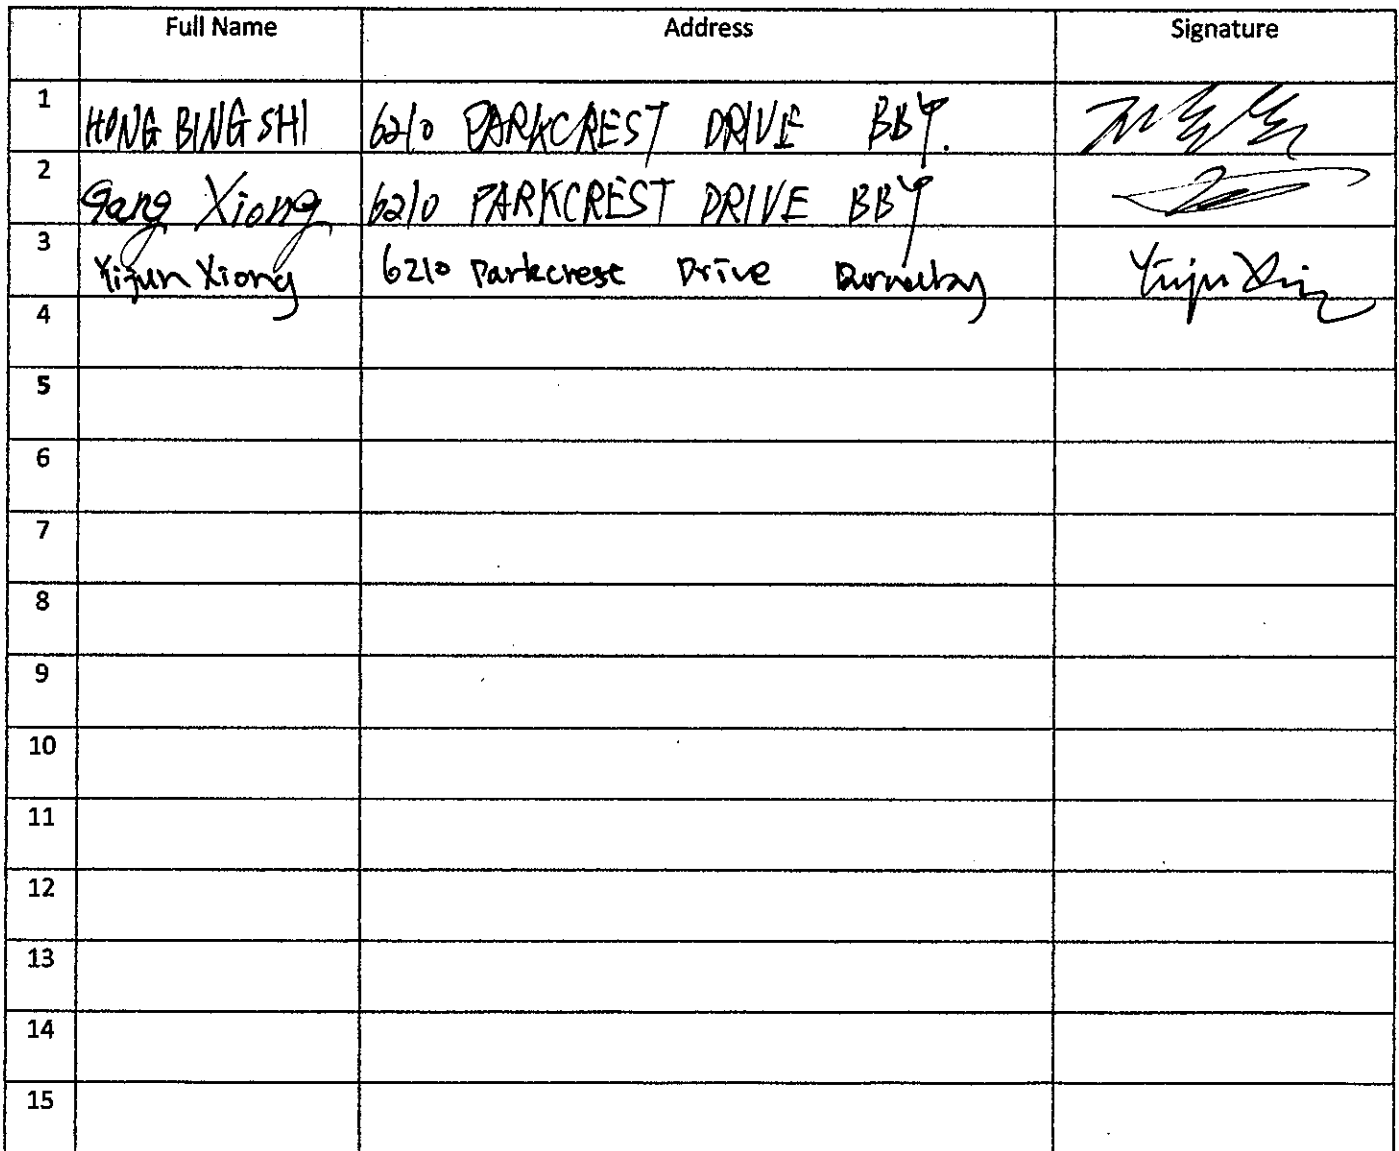 Full Name Address Signature
1 HONG BING SHI 6210 PARKCREST DRIVE BBY.
2 Gang Xiong 6210 PARKCREST DRIVE BBY
3 Yijun Xiong 6210 Parkcrest Drive Burnaby
4
5
6
7
8
9
10
11
12
13
14
15